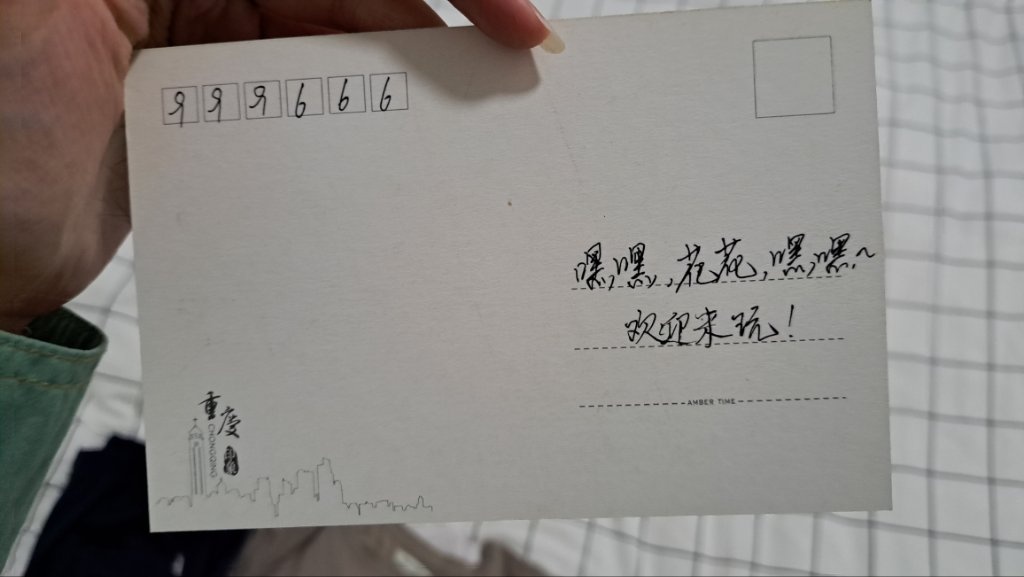 999666
嘿嘿,花花,嘿嘿~
欢迎来玩!
AMBER TIME
重庆
CHONGQING